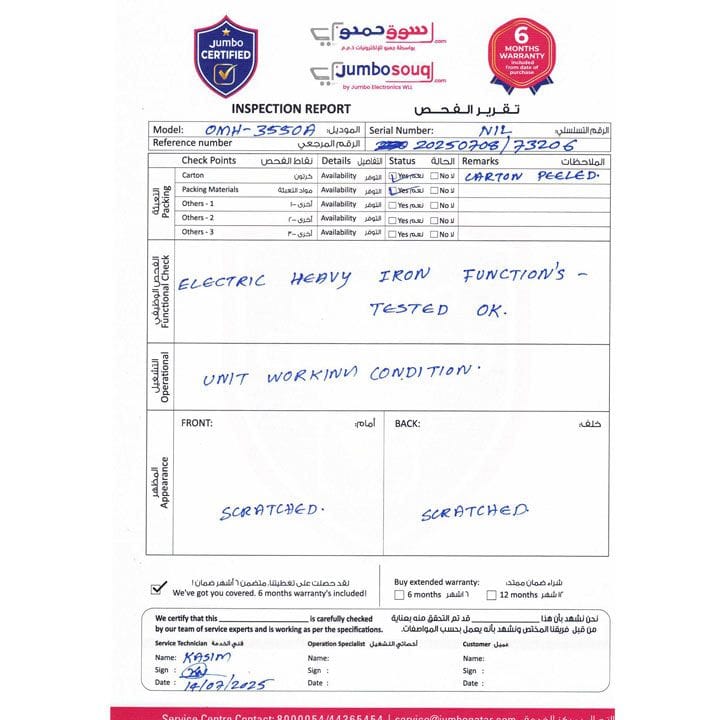 JUMBO
CERTIFIED
سوق جمبو.com
بواسطة جمبو للإلكترونيات ذ.م.م
jumbosouq.com
by Jumbo Electronics WLL
6
MONTHS
WARRANTY
included
from date of
purchase
INSPECTION REPORT تقرير الفحص
Model: OMH-3550A الموديل: Serial Number: NIL الرقم التسلسلي:
Reference number الرقم المرجعي 20250708/73206
Check Points نقاط الفحص Details التفاصيل Status الحالة Remarks الملاحظات
التعبئة Packing
Carton كرتون Availability التوفر Yes نعم No لا CARTON PEELED.
Packing Materials مواد التعبئة Availability التوفر Yes نعم No لا
Others - 1 أخرى -١ Availability التوفر Yes نعم No لا
Others - 2 أخرى -٢ Availability التوفر Yes نعم No لا
Others - 3 أخرى -٣ Availability التوفر Yes نعم No لا
الفحص الوظيفي Functional Check
ELECTRIC HEAVY IRON FUNCTION'S -
TESTED OK.
التشغيل Operational
UNIT WORKING CONDITION.
المظهر Appearance
FRONT: أمام: BACK: خلف:
SCRATCHED. SCRATCHED.
لقد حصلت على تغطيتنا، متضمن ٦ أشهر ضمان!
We've got you covered. 6 months warranty's included!
Buy extended warranty: شراء ضمان ممتد:
6 months ٦ اشهر 12 months ١٢ شهر
We certify that this is carefully checked
by our team of service experts and is working as per the specifications.
نحن نشهد بأن هذا قد تم التحقق منه بعناية
من قبل فريقنا المختص ونشهد بأنه يعمل بحسب المواصفات.
Service Technician فني الخدمة Operation Specialist أخصائي التشغيل Customer عميل
Name: KASIM Name: Name:
Sign : Sign : Sign :
Date : 14/07/2025 Date : Date :
Service Centre Contact: 8000054/44365454 | service@jumboqatar.com